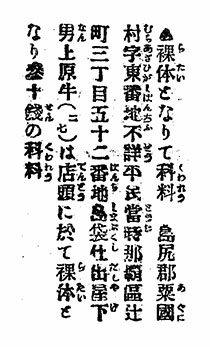 ▲裸體となりて科料　島尻郡粟國
村字東番地不詳平民當時那覇區辻
町三丁目五十二番地島袋仕出屋下
男上原牛(二七)は店頭に於て裸體と
なり參十錢の科料